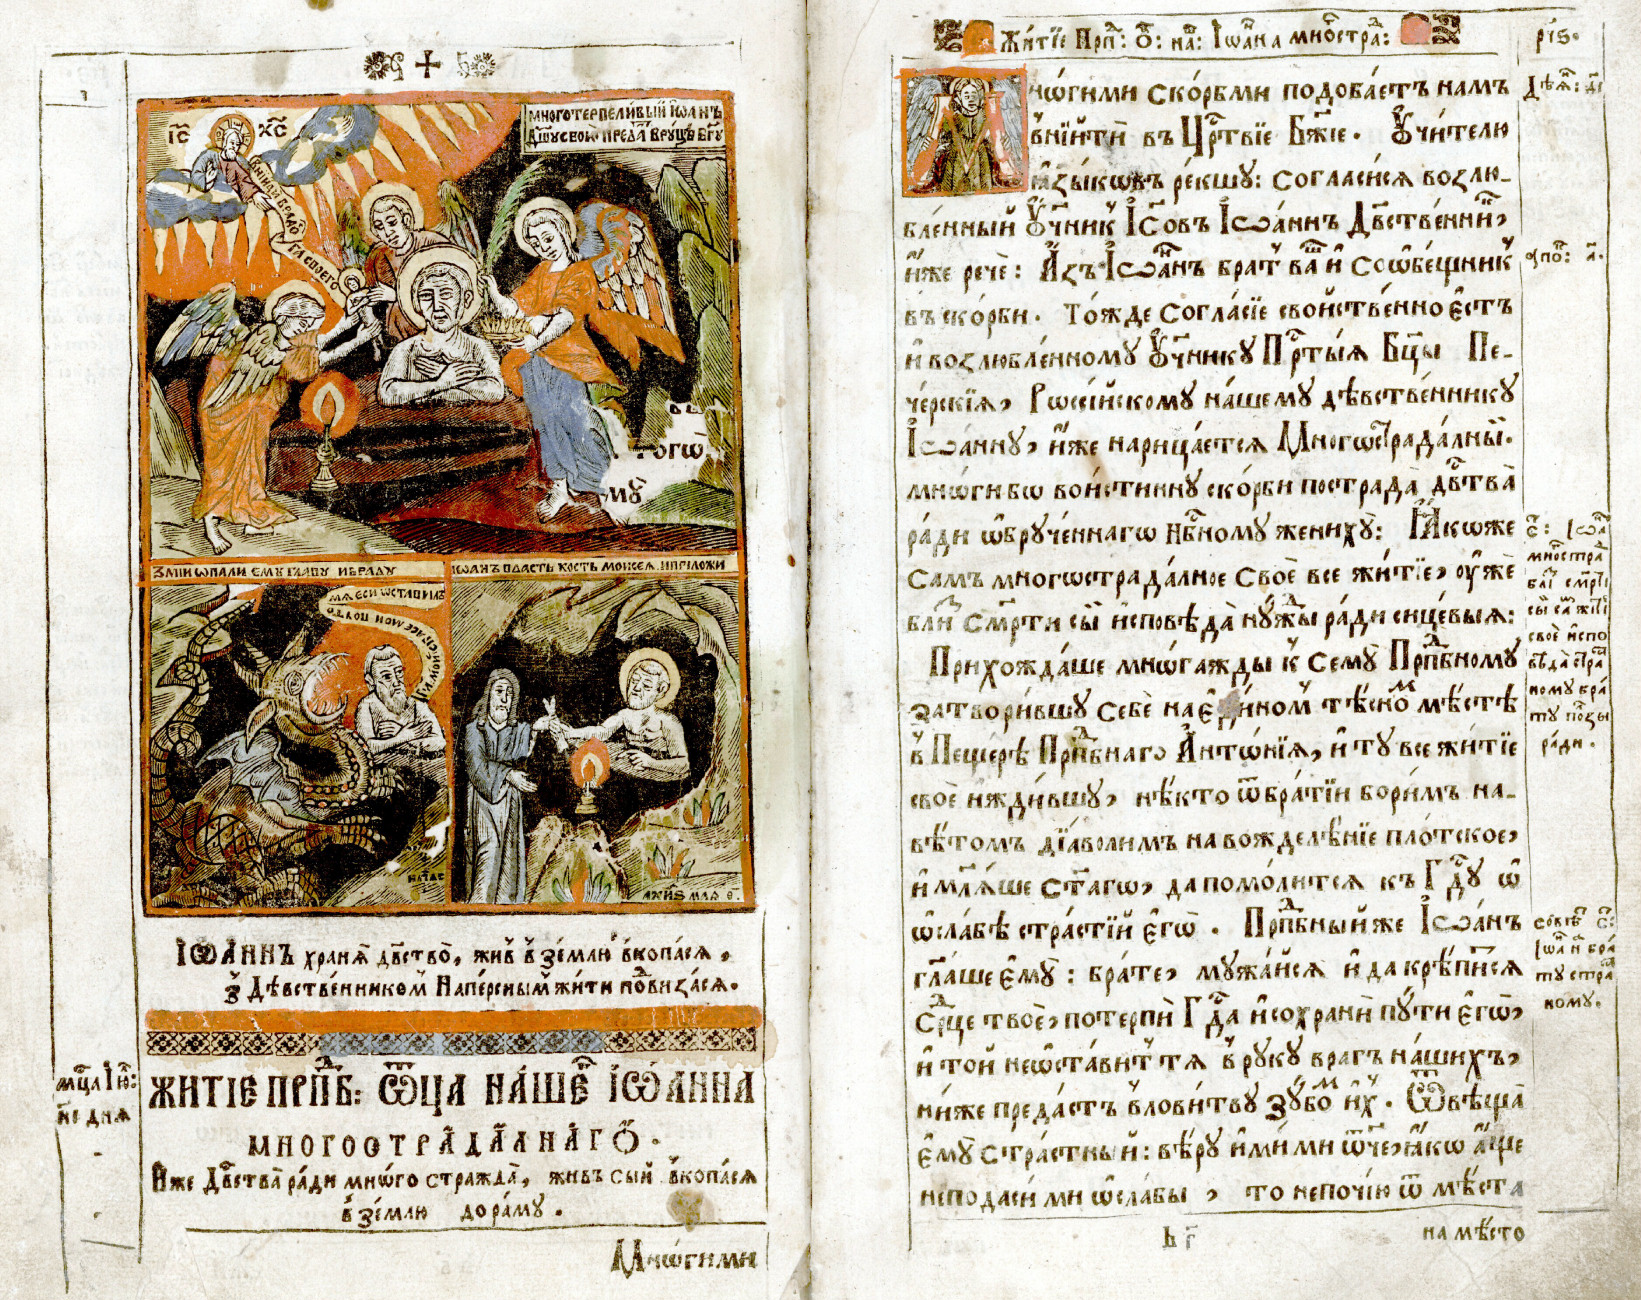 І҃С Х҃С
МНОГОТЕРПЕЛИВЫЙ ІѠАНЪ
Д҃ШУ СВОЮ ПРЕДА̀ В РУЦѢ Б҃ГУ
ГА СВОЕГО
ЗМІИ ѠПАЛИ ЕМУ ГЛАВУ И БРАДУ
ІѠАНЪ ВДАСТЬ КОСТЬ МОИСЕЯ. И ПРІЛОЖИ
МѦ ЕСИ ѠСТАВИЛЪ
ІѠА́ННЪ хранѧ̀ дв҃ство̀, жи́въ в̾ зе́млю в̾копа́сѧ,
з̾ Дѣ́вственникомъ Напе́рснымъ жи́ти подвиза́сѧ.
ЖИТІЕ ПРПⷣБ: ѾЦА НА́ШЕГѠ ІѠА́ННА
МНОГОСТРАДА́ЛНАГѠ.
И҆́же Дв҃ства̀ ра́ди мнѡ́го стражда̀, жи́въ сый в̾копа́сѧ
в̾ зе́млю до ра́му.
мⷭ҇ца Іюⷧ:
и҃і днѧ
Мнѡ́гими
Житїе Прпⷣ: Ѻ҃: на́: Іѡа́на многостраⷣ:
рі҃ѕ.
Мнѡ́гими ско́рбми подоба́етъ намъ
в̾ни́йти въ Црⷭ҇твїе Бж҃їе. Оу҆чи́телю
ꙗ҆зы́кѡвъ ре́кшу: согласи́сѧ возлю-
бле́нный Оу҆чн҃икъ І҆с҃овъ І҆ѡа́ннъ Дв҃ственный,
и҆́же речѐ: А҆́зъ І҆ѡа́ннъ бра́тъ ва́шъ и҆ соѡ́бещникъ
въ ско́рби. То́жде согла́сїе сво́йственно є҆́стъ
и҆ возлю́бленному Оу҆чн҃ику Прⷭ҇тыѧ Бц҃ы Пе-
че́рскїѧ, Рѡссі́йскому на́шему дѣ́вственнику
І҆ѡа́нну, и҆́же нарица́етсѧ Многѡстрада́лный.
мнѡ́ги бо вои́стинну ско́рби пострада̀ дв҃ства̀
ра́ди ѡ҆бруче́ннагѡ Нбⷭ҇ному женихꙋ̀: Ꙗ҆́коже
Самъ многострада́лное своѐ все житїѐ, оу҆жѐ
близ̾ См҃рти сы́й и҆сповѣ́да ну́жды ра́ди сицевы́ѧ:
Прихожда́ше мнѡ́гажды к̾ сему̀ Прпⷣбному
затвори́вшу себѐ на є҆ди́номъ тѣ́сномъ мѣ́стѣ
в̾ Пеще́рѣ Прпⷣбнаго А҆нто́нїѧ, и҆ ту̀ все житїѐ
своѐ и҆жди́вшу, нѣ́кто ѿ бра́тїи бори́мъ на-
вѣ́томъ дїа́волимъ на вожделѣ́нїе пло́тское,
и҆ мл҃ѧ́ше ст҃а́гѡ, да помо́литсѧ къ Гдⷭ҇у ѡ҆
ѡ҆сла́бѣ страсті́й є҆гѡ̀. Прпⷣбный же І҆ѡа́нъ
гл҃аше є҆му̀: бра́те, мужа́йсѧ и҆ да крѣпи́тсѧ
Срⷣце твоѐ, потерпѝ Гдⷭ҇а и҆ сохранѝ пути̑ є҆гѡ̀,
и҆ то́й не ѡ҆ста́витъ тѧ в̾ руку̀ вра́гъ на́шихъ,
ни́же преда́стъ в̾ лови́тву зубо́мъ и҆́хъ. Ѿвѣща̀
є҆му̀ Стра́стный: вѣ́ру и҆ми́ ми ѿче, ꙗ҆́кѡ а҆́ще
не пода́си ми ѡ҆сла́бы, то не почі́ю ѿ мѣ́ста
на мѣ́сто
Дѣѧ́н: д҃і
апо́: а҃.
є҃: І҆ѡа́н
многостра
близ̾ см҃рти
сы́й все житїѐ
своѐ и҆спо
вѣ́да стра́ст
ному бра́
ту по́лзы
ра́ди.
совѣ́т с҃:
І҆ѡа́н бра́
ту стра́ст
ному.